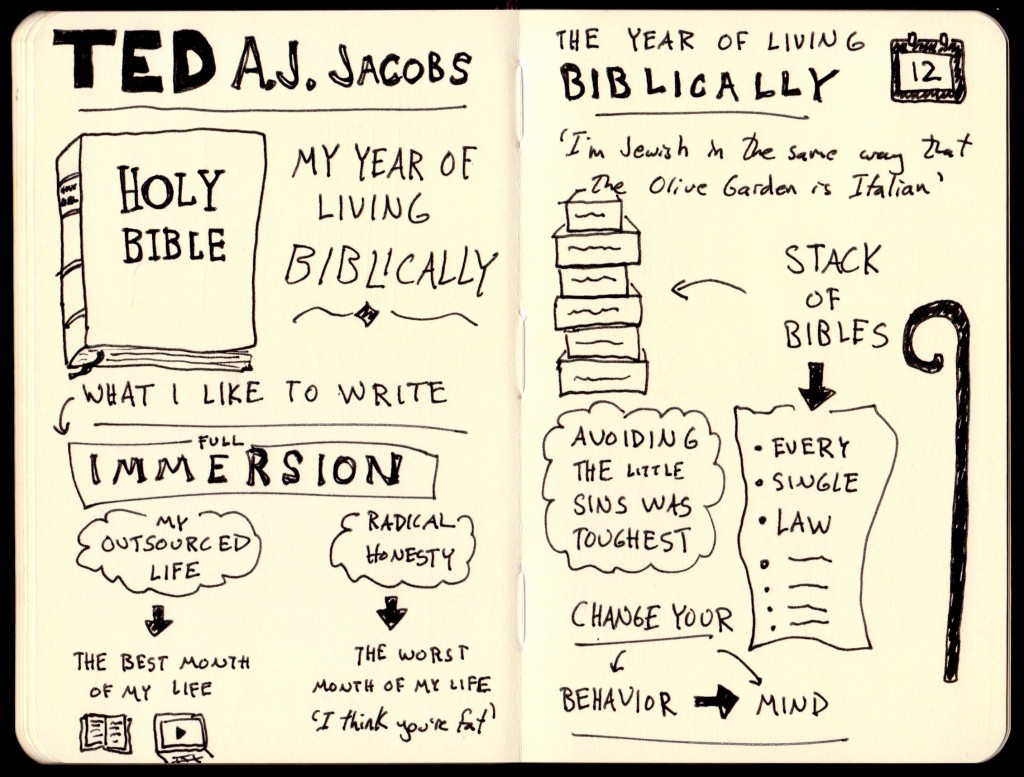 TED A.J. JACOBS
HOLY
BIBLE
MY YEAR OF
LIVING
BIBLICALLY
WHAT I LIKE TO WRITE
FULL
IMMERSION
MY
OUTSOURCED
LIFE
THE BEST MONTH
OF MY LIFE
RADICAL
HONESTY
THE WORST
MONTH OF MY LIFE
'I think you're fat'
THE YEAR OF LIVING
BIBLICALLY
12
'I'm Jewish in the same way that
the Olive Garden is Italian'
STACK
OF
BIBLES
• EVERY
• SINGLE
• LAW
AVOIDING
THE LITTLE
SINS WAS
TOUGHEST
CHANGE YOUR
BEHAVIOR → MIND